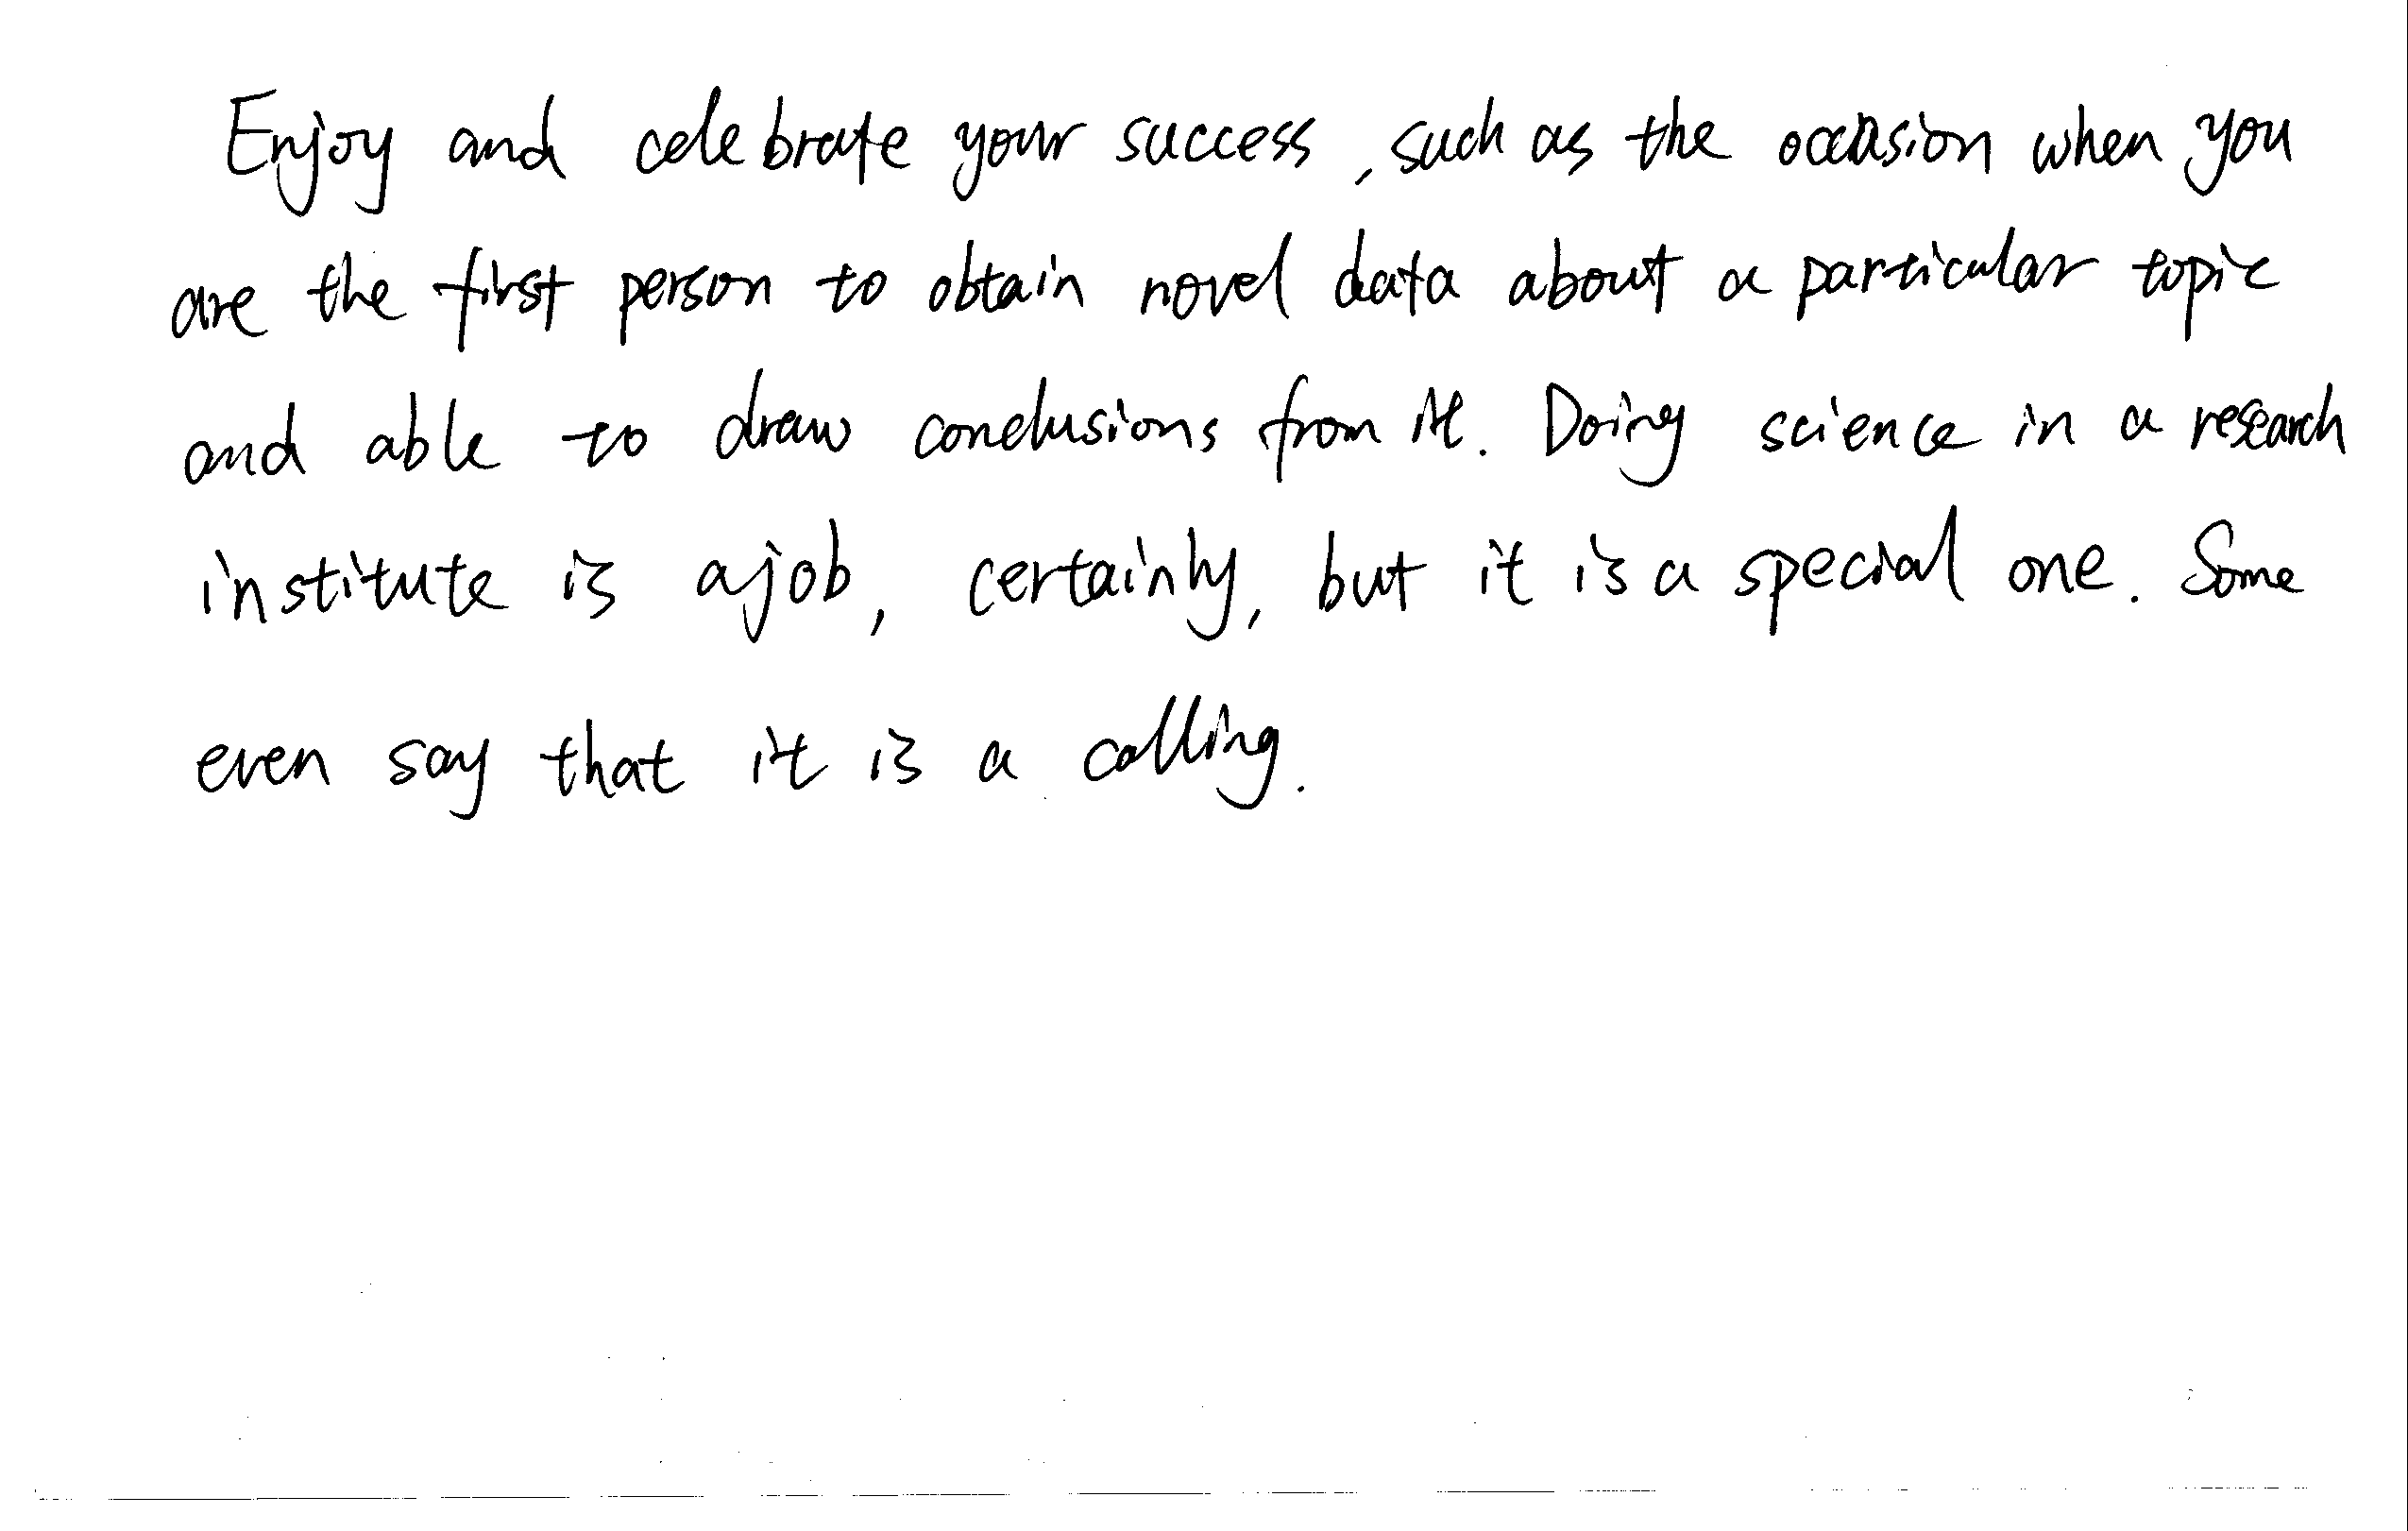 Enjoy and celebrate your success, such as the occasion when you
are the first person to obtain novel data about a particular topic
and able to draw conclusions from it. Doing science in a research
institute is a job, certainly, but it is a special one. Some
even say that it is a calling.